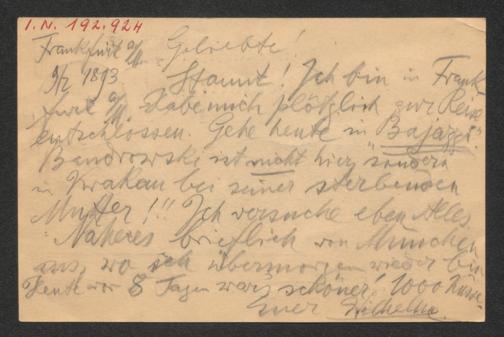 I.N. 192.924
Frankfurt a/M Geliebte!
9/2 1893 Staunt! Ich bin in Frank-
furt a/M habe mich plötzlich zur Reise
entschlossen. Gehe heute in "Bajazzi"
Bandrowski ist nicht hier, sondern
in Krakau bei seiner sterbenden
Mutter!! Ich versuche eben Alles.
Näheres brieflich von München
aus, wo ich übermorgen wieder bin
Heute vor 8 Tagen war's schöner! 1000
Euer